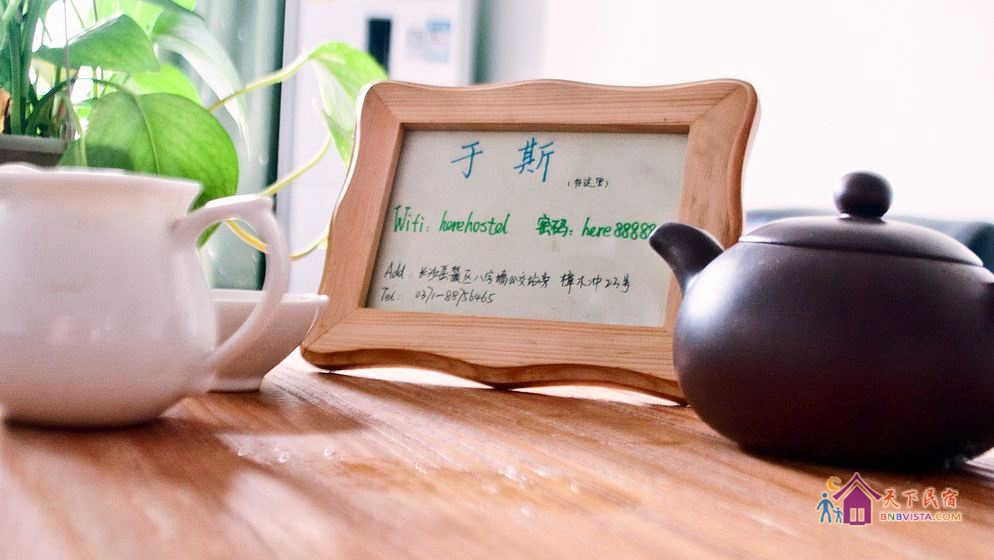 于斯
(在这里)
Wifi: herehostel 密码: here88888
Add: 长沙岳麓区八字墙公交站旁 樟木冲23号
Tel: 0371-88756465
天下民宿
BNBVISTA.COM